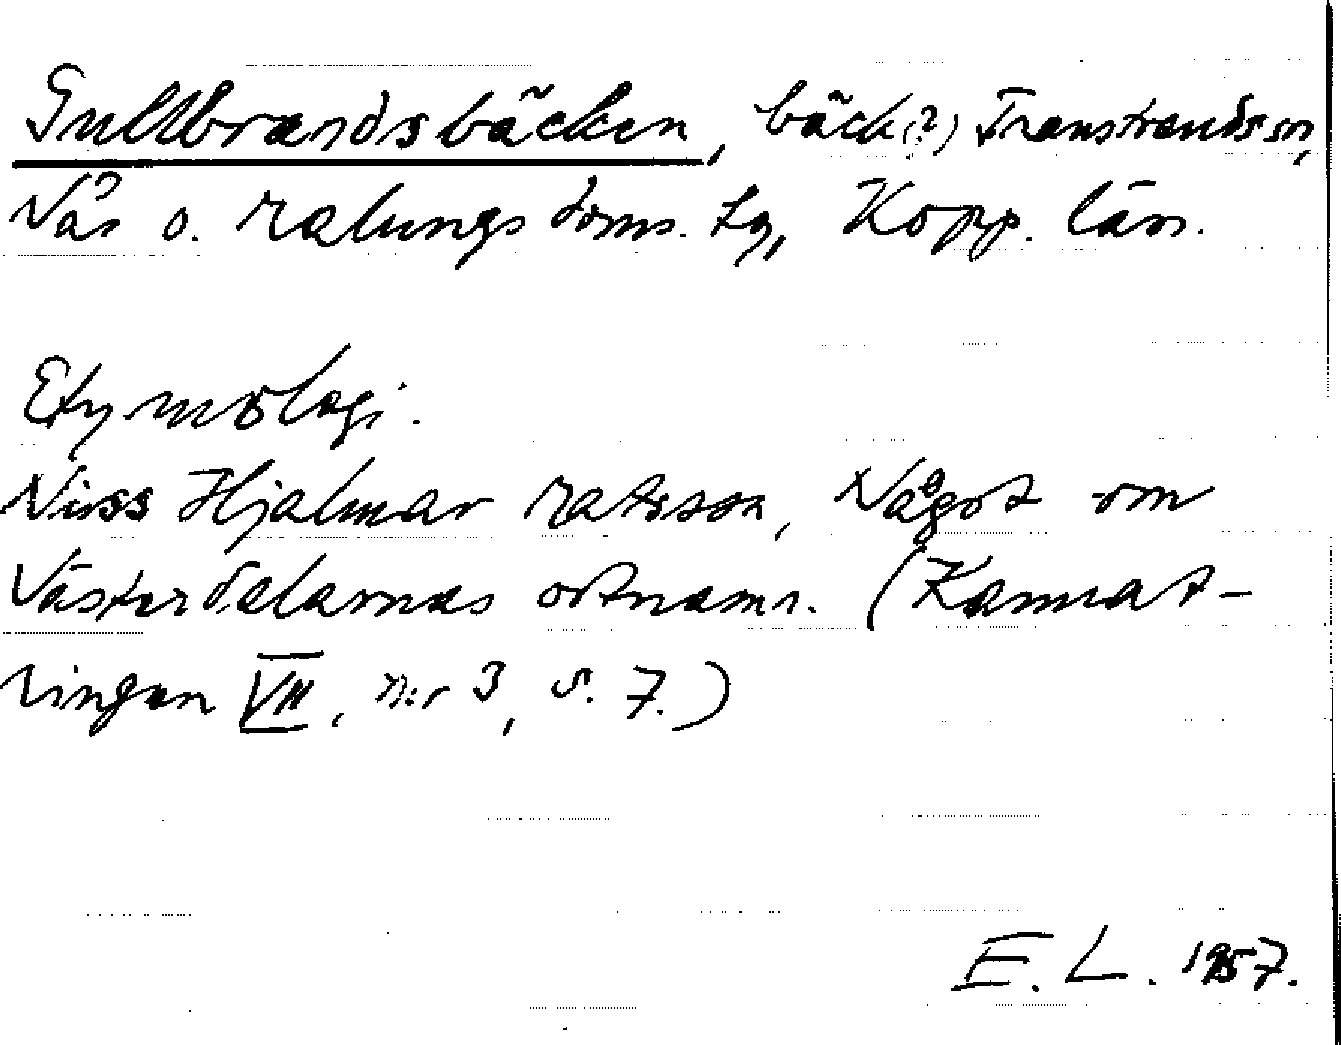 Gullbrandsbäcken, bäck(?) Transtrands sn,
Nås o. Malungs doms. tg, Kopp. län.
Etymologi.
Niss Hjalmar Matsson, Något om
Västerdalarnas ortnamn. (Kamrat-
ringen VII, n:r 3, s. 7.)
E. L. 1957.